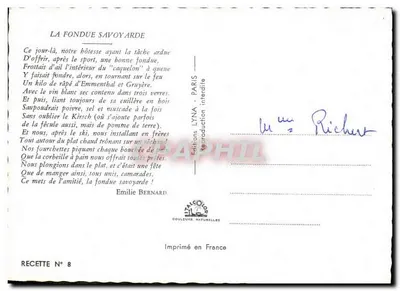 LA FONDUE SAVOYARDE
Ce jour-là, notre hôtesse ayant la tâche ardue
D'offrir, après le sport, une bonne fondue,
Frottait d'ail l'intérieur du "caquelon" à queue
Y faisait fondre, alors, en tournant sur le feu
Un kilo de râpé d'Emmenthal et Gruyère.
Avec le vin blanc sec contenu dans trois verres
Et puis, liant toujours de sa cuillère en bois
Saupoudrait poivre, sel et muscade à la fois
Sans oublier le Kirsch (où s'ajoute parfois
de la fécule aussi, mais de pomme de terre).
Et nous, après le ski, nous installant en frères
Tout autour du plat chand trônant sur un
Nos fourchettes piquant chaque bouchée de
Que la corbeille à pain nous offrait
Nous plongions dans le plat, et c'était une fête
Que de manger ainsi, tous unis, camarades.
Ce mets de l'amitié, la fondue savoyarde !
Emilie BERNARD
RECETTE N° 8
Editions LYNA - PARIS
Reproduction interdite
Mme Richert
COULEURS NATURELLES
Imprimé en France